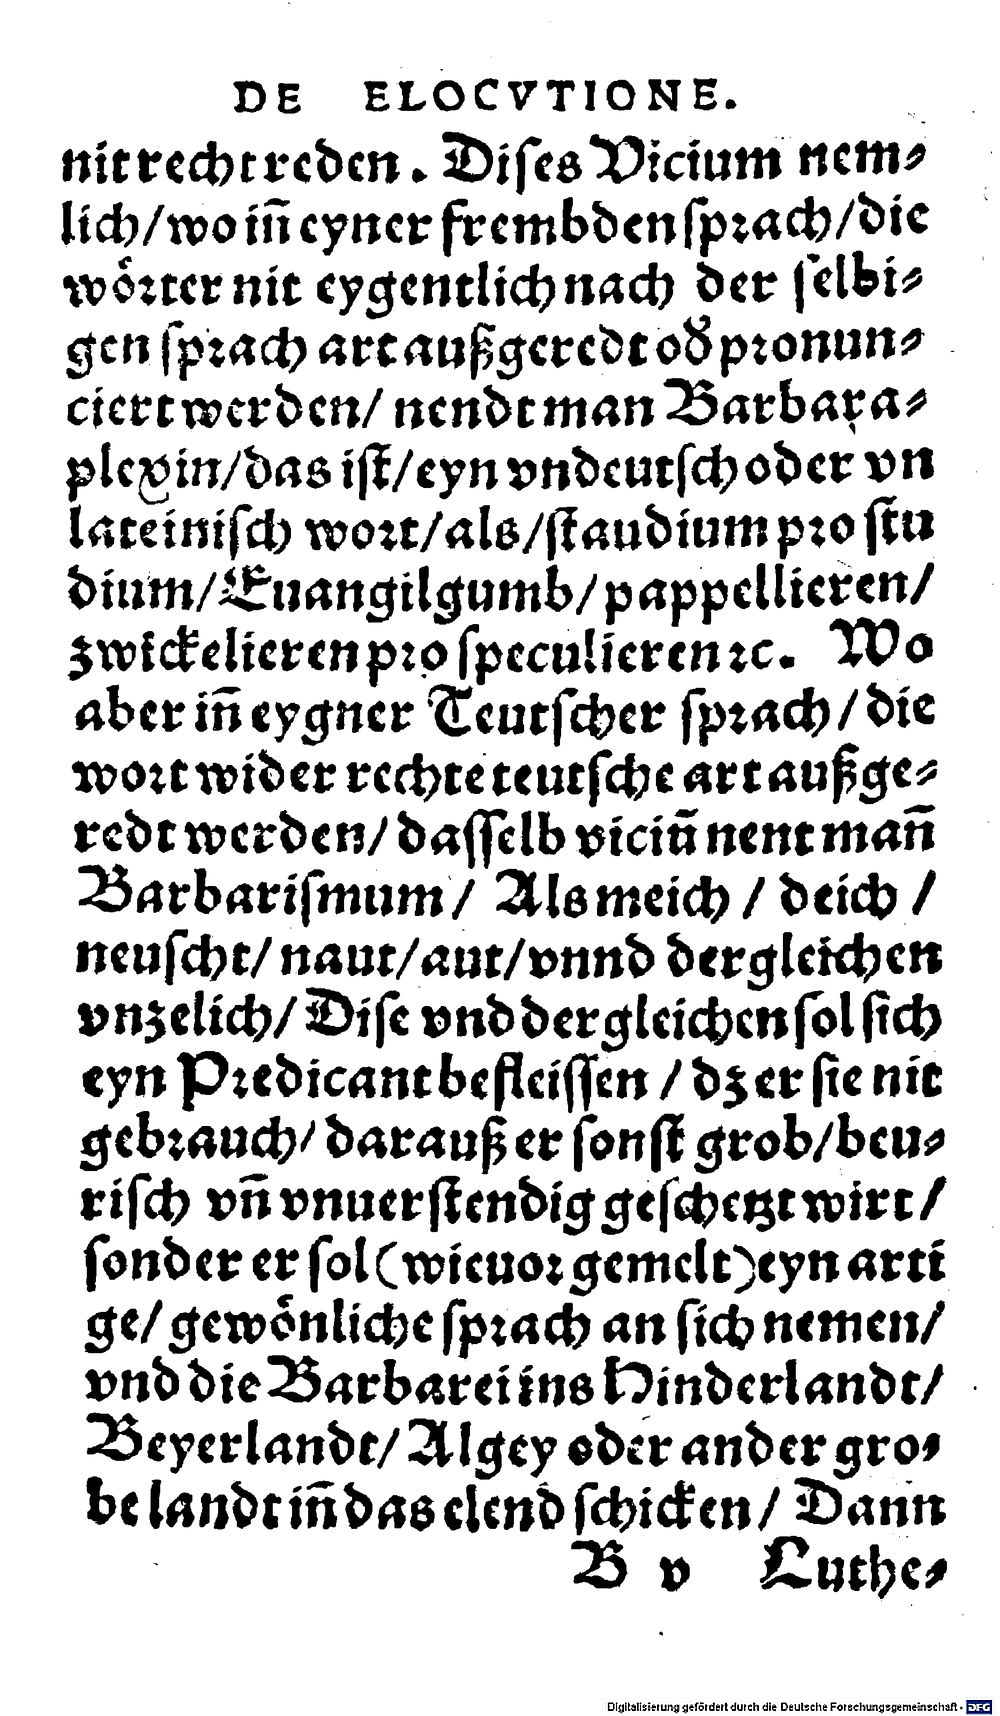 DE ELOCVTIONE.
nit recht reden. Diſes Vicium nem⸗
lich/ wo iñ eyner frembden ſprach/ die
woͤrter nit eygentlich nach der ſelbi⸗
gen ſprach art außgeredt oď pronun⸗
ciert werden/ nendt man Barbara⸗
plexin/ das iſt/ eyn vndeutſch oder vn
lateiniſch wort/ als/ ſtaudium pro ſtu
dium/ Euangilgumb/ pappellieren/
zwickelieren pro ſpeculieren ꝛc. Wo
aber iñ eygner Teutſcher ſprach/ die
wort wider rechte teutſche art außge⸗
redt werden/ daſſelb viciū nent mañ
Barbariſmum/ Als meich / deich /
neuſcht/ naut/ aut/ vnnd dergleichen
vnzelich/ Diſe vnd dergleichen ſol ſich
eyn Predicant befleiſſen / dz er ſie nit
gebrauch/ darauß er ſonſt grob/ beu⸗
riſch vñ vnuerſtendig geſchetzt wirt/
ſonder er ſol (wie uor gemelt) eyn arti
ge/ gewoͤnliche ſprach an ſich nemen/
vnd die Barbarei ins Hinderlandt/
Beyerlandt/ Algey oder ander gro⸗
be landt iñ das elend ſchicken/ Dann
B v Luthe⸗
Digitalisierung gefördert durch die Deutsche Forschungsgemeinschaft - DFG